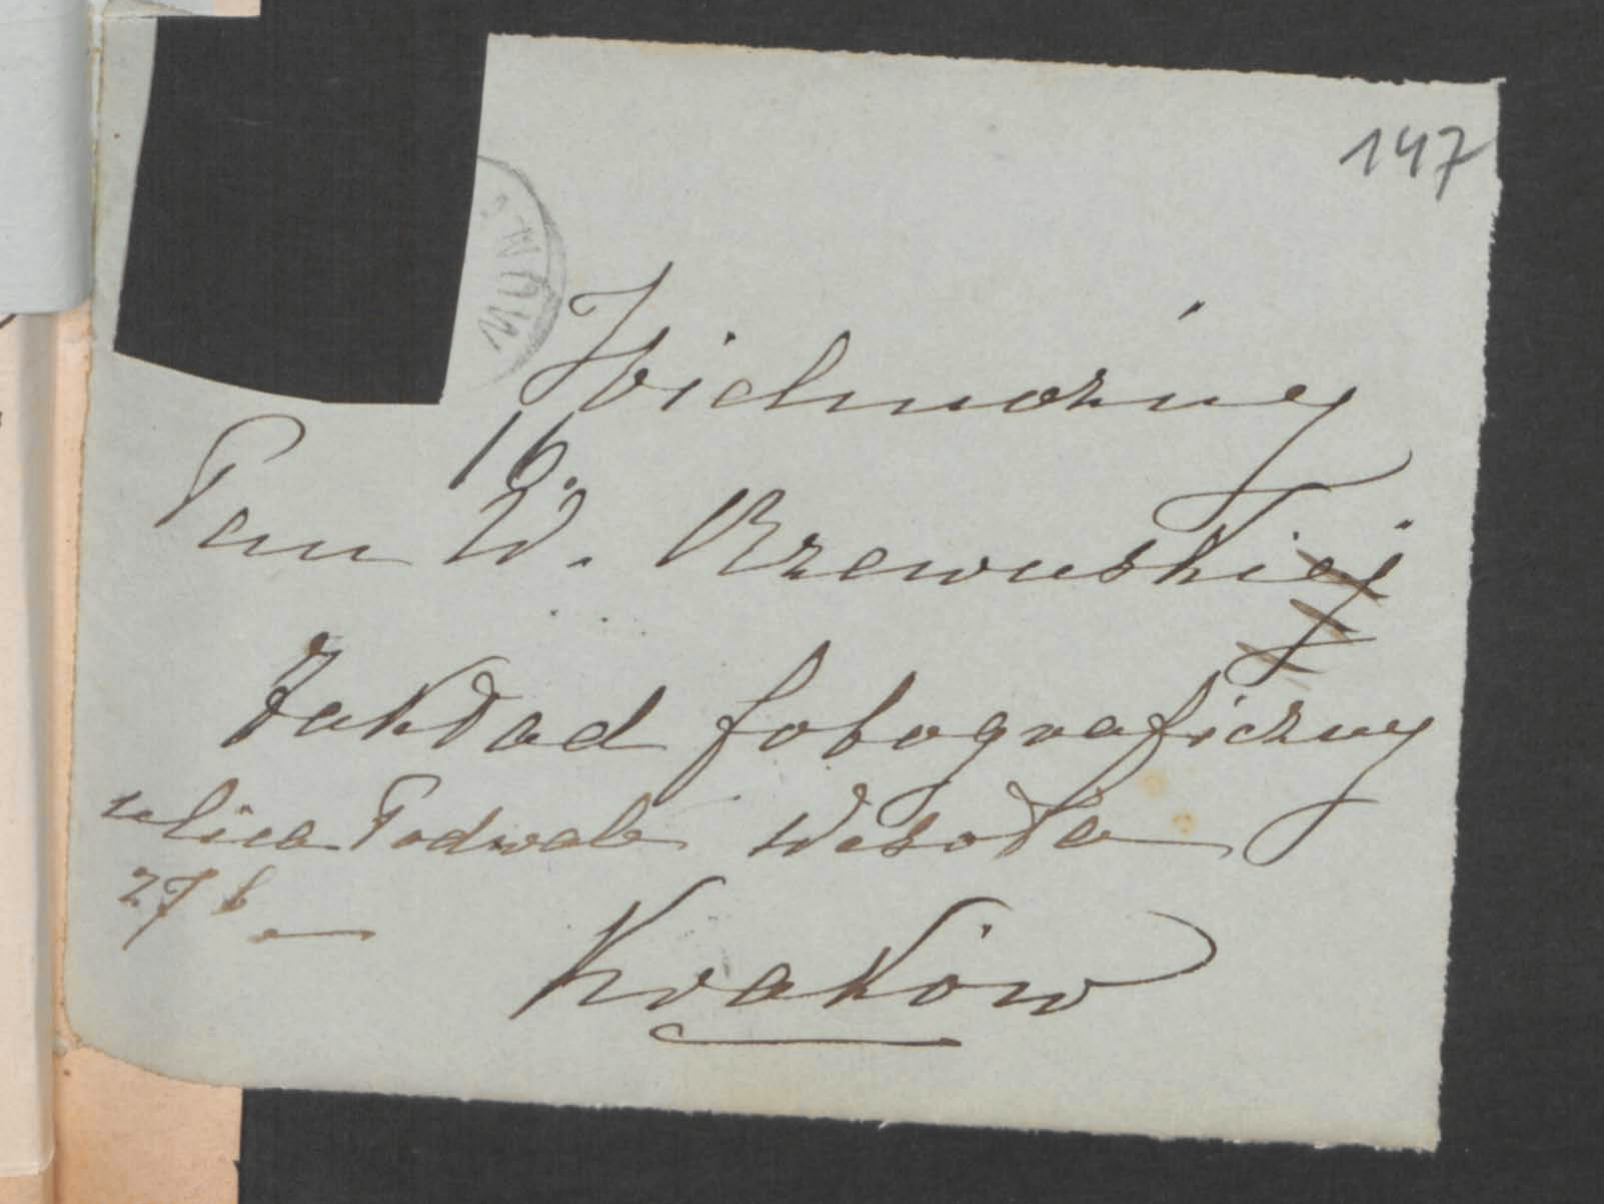 147
Wielmożny
16.
Pan W. Rzewuski
Zakład fotograficzny
ulica Podwale Wesoła
27 b
Kraków